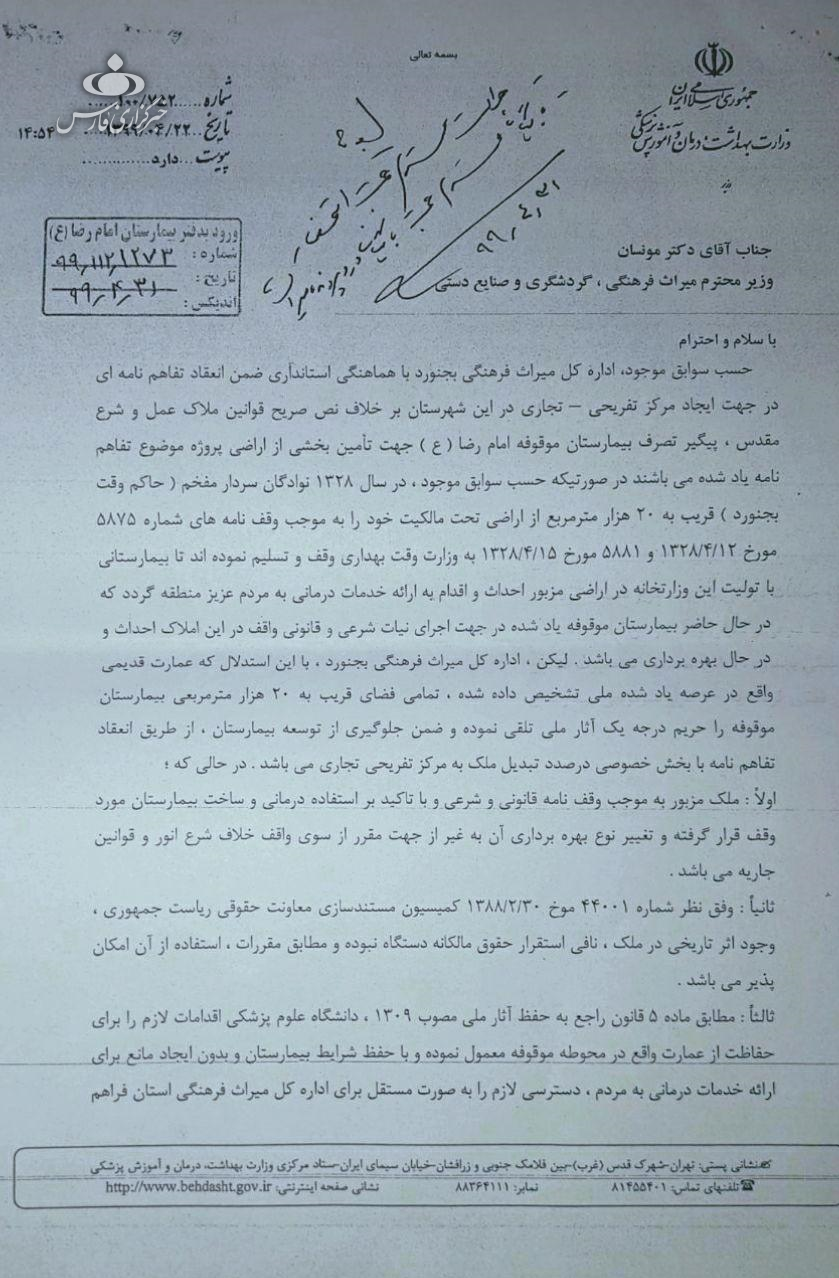 بسمه تعالی
جمهوری اسلامی ایران
وزارت بهداشت، درمان و آموزش پزشکی
وزیر
شماره.....۱۰۰/۷۵۲.....
تاریخ....۱۳۹۹/۰۴/۲۲.... ۱۴:۵۴
پیوست...دارد.............
خبرگزاری فارس
ورود بدفتر بیمارستان امام رضا (ع)
شماره : ۹۹/۱۱۲/۱۲۷۳
تاریخ : ۹۹/۴/۳۱
اندیکس :
۹۹/۴/۳۱
جناب آقای دکتر مونسان
وزیر محترم میراث فرهنگی ، گردشگری و صنایع دستی
با سلام و احترام
حسب سوابق موجود، اداره کل میراث فرهنگی بجنورد با هماهنگی استانداری ضمن انعقاد تفاهم نامه ای
در جهت ایجاد مرکز تفریحی – تجاری در این شهرستان بر خلاف نص صریح قوانین ملاک عمل و شرع
مقدس ، پیگیر تصرف بیمارستان موقوفه امام رضا ( ع ) جهت تأمین بخشی از اراضی پروژه موضوع تفاهم
نامه یاد شده می باشند در صورتیکه حسب سوابق موجود ، در سال ۱۳۲۸ نوادگان سردار مفخم ( حاکم وقت
بجنورد ) قریب به ۲۰ هزار مترمربع از اراضی تحت مالکیت خود را به موجب وقف نامه های شماره ۵۸۷۵
مورخ ۱۳۲۸/۴/۱۲ و ۵۸۸۱ مورخ ۱۳۲۸/۴/۱۵ به وزارت وقت بهداری وقف و تسلیم نموده اند تا بیمارستانی
با تولیت این وزارتخانه در اراضی مزبور احداث و اقدام به ارائه خدمات درمانی به مردم عزیز منطقه گردد که
در حال حاضر بیمارستان موقوفه یاد شده در جهت اجرای نیات شرعی و قانونی واقف در این املاک احداث و
در حال بهره برداری می باشد . لیکن ، اداره کل میراث فرهنگی بجنورد ، با این استدلال که عمارت قدیمی
واقع در عرصه یاد شده ملی تشخیص داده شده ، تمامی فضای قریب به ۲۰ هزار مترمربعی بیمارستان
موقوفه را حریم درجه یک آثار ملی تلقی نموده و ضمن جلوگیری از توسعه بیمارستان ، از طریق انعقاد
تفاهم نامه با بخش خصوصی درصدد تبدیل ملک به مرکز تفریحی تجاری می باشد . در حالی که ؛
اولاً : ملک مزبور به موجب وقف نامه قانونی و شرعی و با تاکید بر استفاده درمانی و ساخت بیمارستان مورد
وقف قرار گرفته و تغییر نوع بهره برداری آن به غیر از جهت مقرر از سوی واقف خلاف شرع انور و قوانین
جاریه می باشد .
ثانیاً : وفق نظر شماره ۴۴۰۰۱ موخ ۱۳۸۸/۲/۳۰ کمیسیون مستندسازی معاونت حقوقی ریاست جمهوری ،
وجود اثر تاریخی در ملک ، نافی استقرار حقوق مالکانه دستگاه نبوده و مطابق مقررات ، استفاده از آن امکان
پذیر می باشد .
ثالثاً : مطابق ماده ۵ قانون راجع به حفظ آثار ملی مصوب ۱۳۰۹ ، دانشگاه علوم پزشکی اقدامات لازم را برای
حفاظت از عمارت واقع در محوطه موقوفه معمول نموده و با حفظ شرایط بیمارستان و بدون ایجاد مانع برای
ارائه خدمات درمانی به مردم ، دسترسی لازم را به صورت مستقل برای اداره کل میراث فرهنگی استان فراهم
نشانی پستی: تهران-شهرک قدس (غرب)-بین فلامک جنوبی و زرافشان-خیابان سیمای ایران-ستاد مرکزی وزارت بهداشت، درمان و آموزش پزشکی
تلفنهای تماس: ۸۱۴۵۵۴۰۱ نمابر: ۸۸۳۶۴۱۱۱ نشانی صفحه اینترنتی: http://www.behdasht.gov.ir